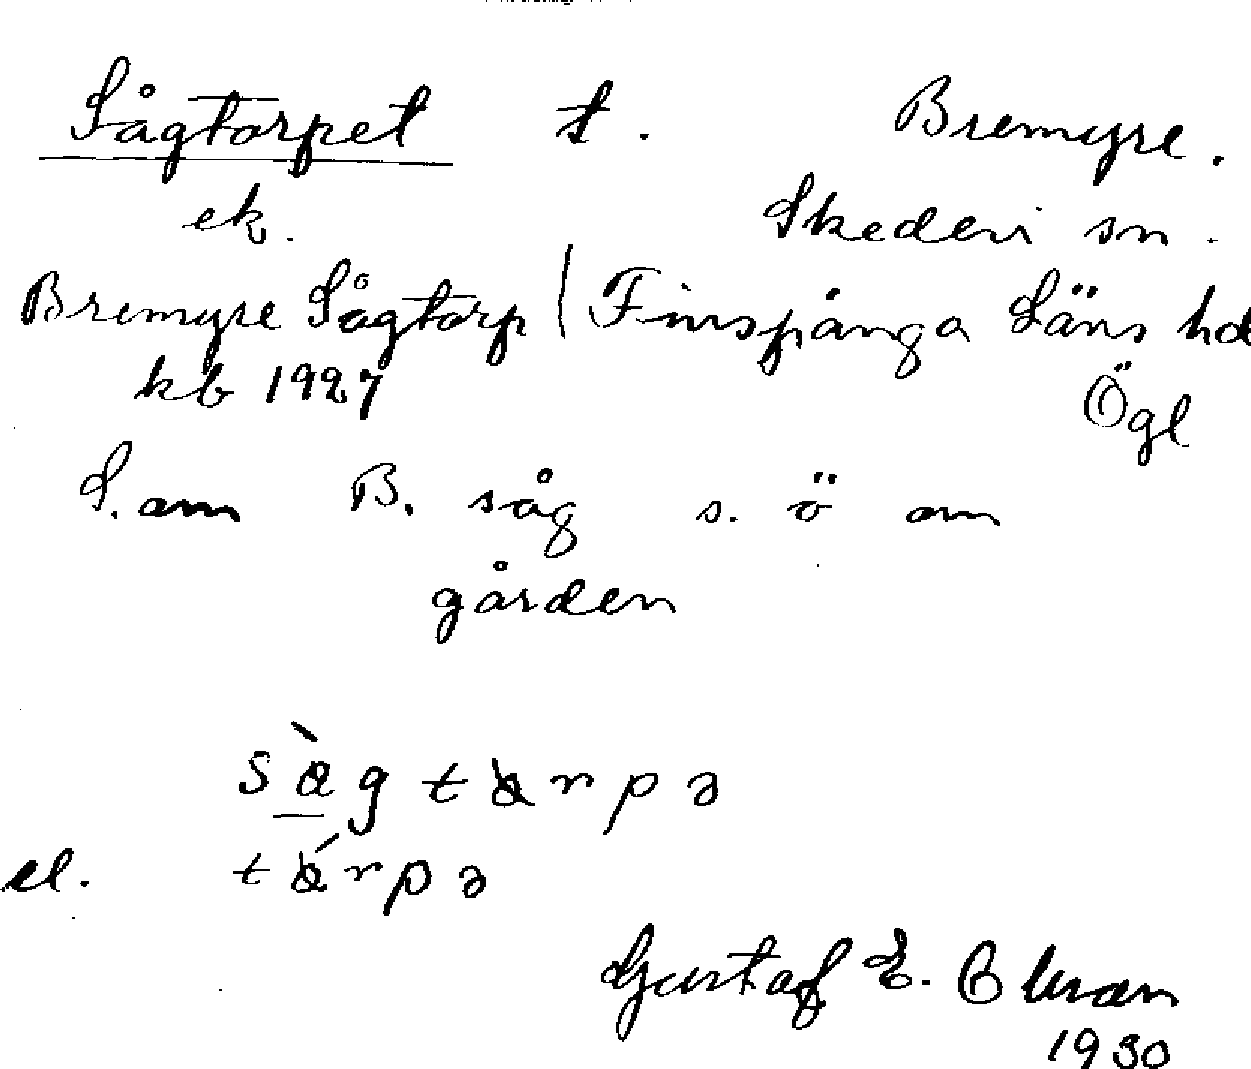 Sågtorpet t. Bremyre.
ek. Skedevi sn.
Bremyre Sågtorp / Finspånga Läns hd
kb 1927 Ögl
S. om B. såg s. ö om
gården
el.
Gustaf E.
1930